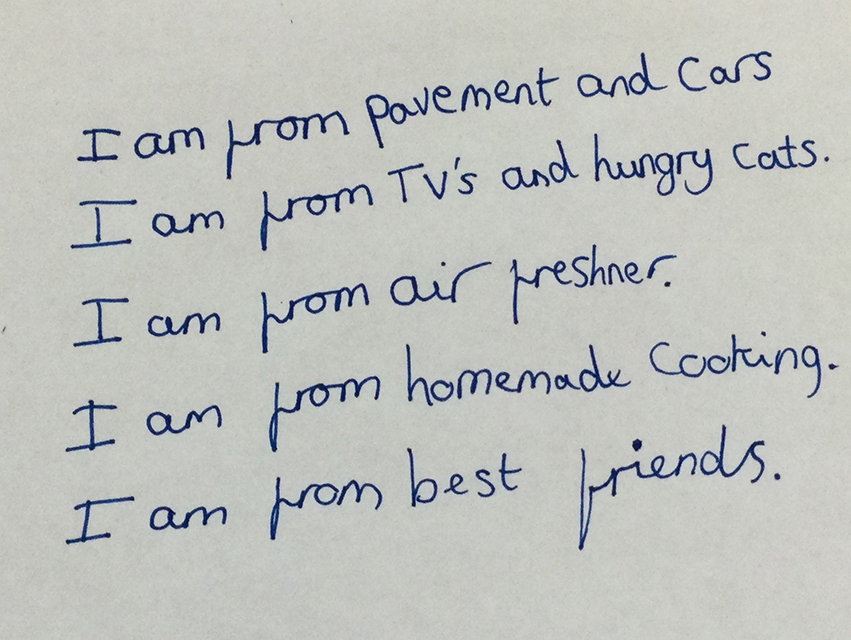 I am from pavement and cars
I am from TV's and hungry cats.
I am from air freshner.
I am from homemade cooking.
I am from best friends.